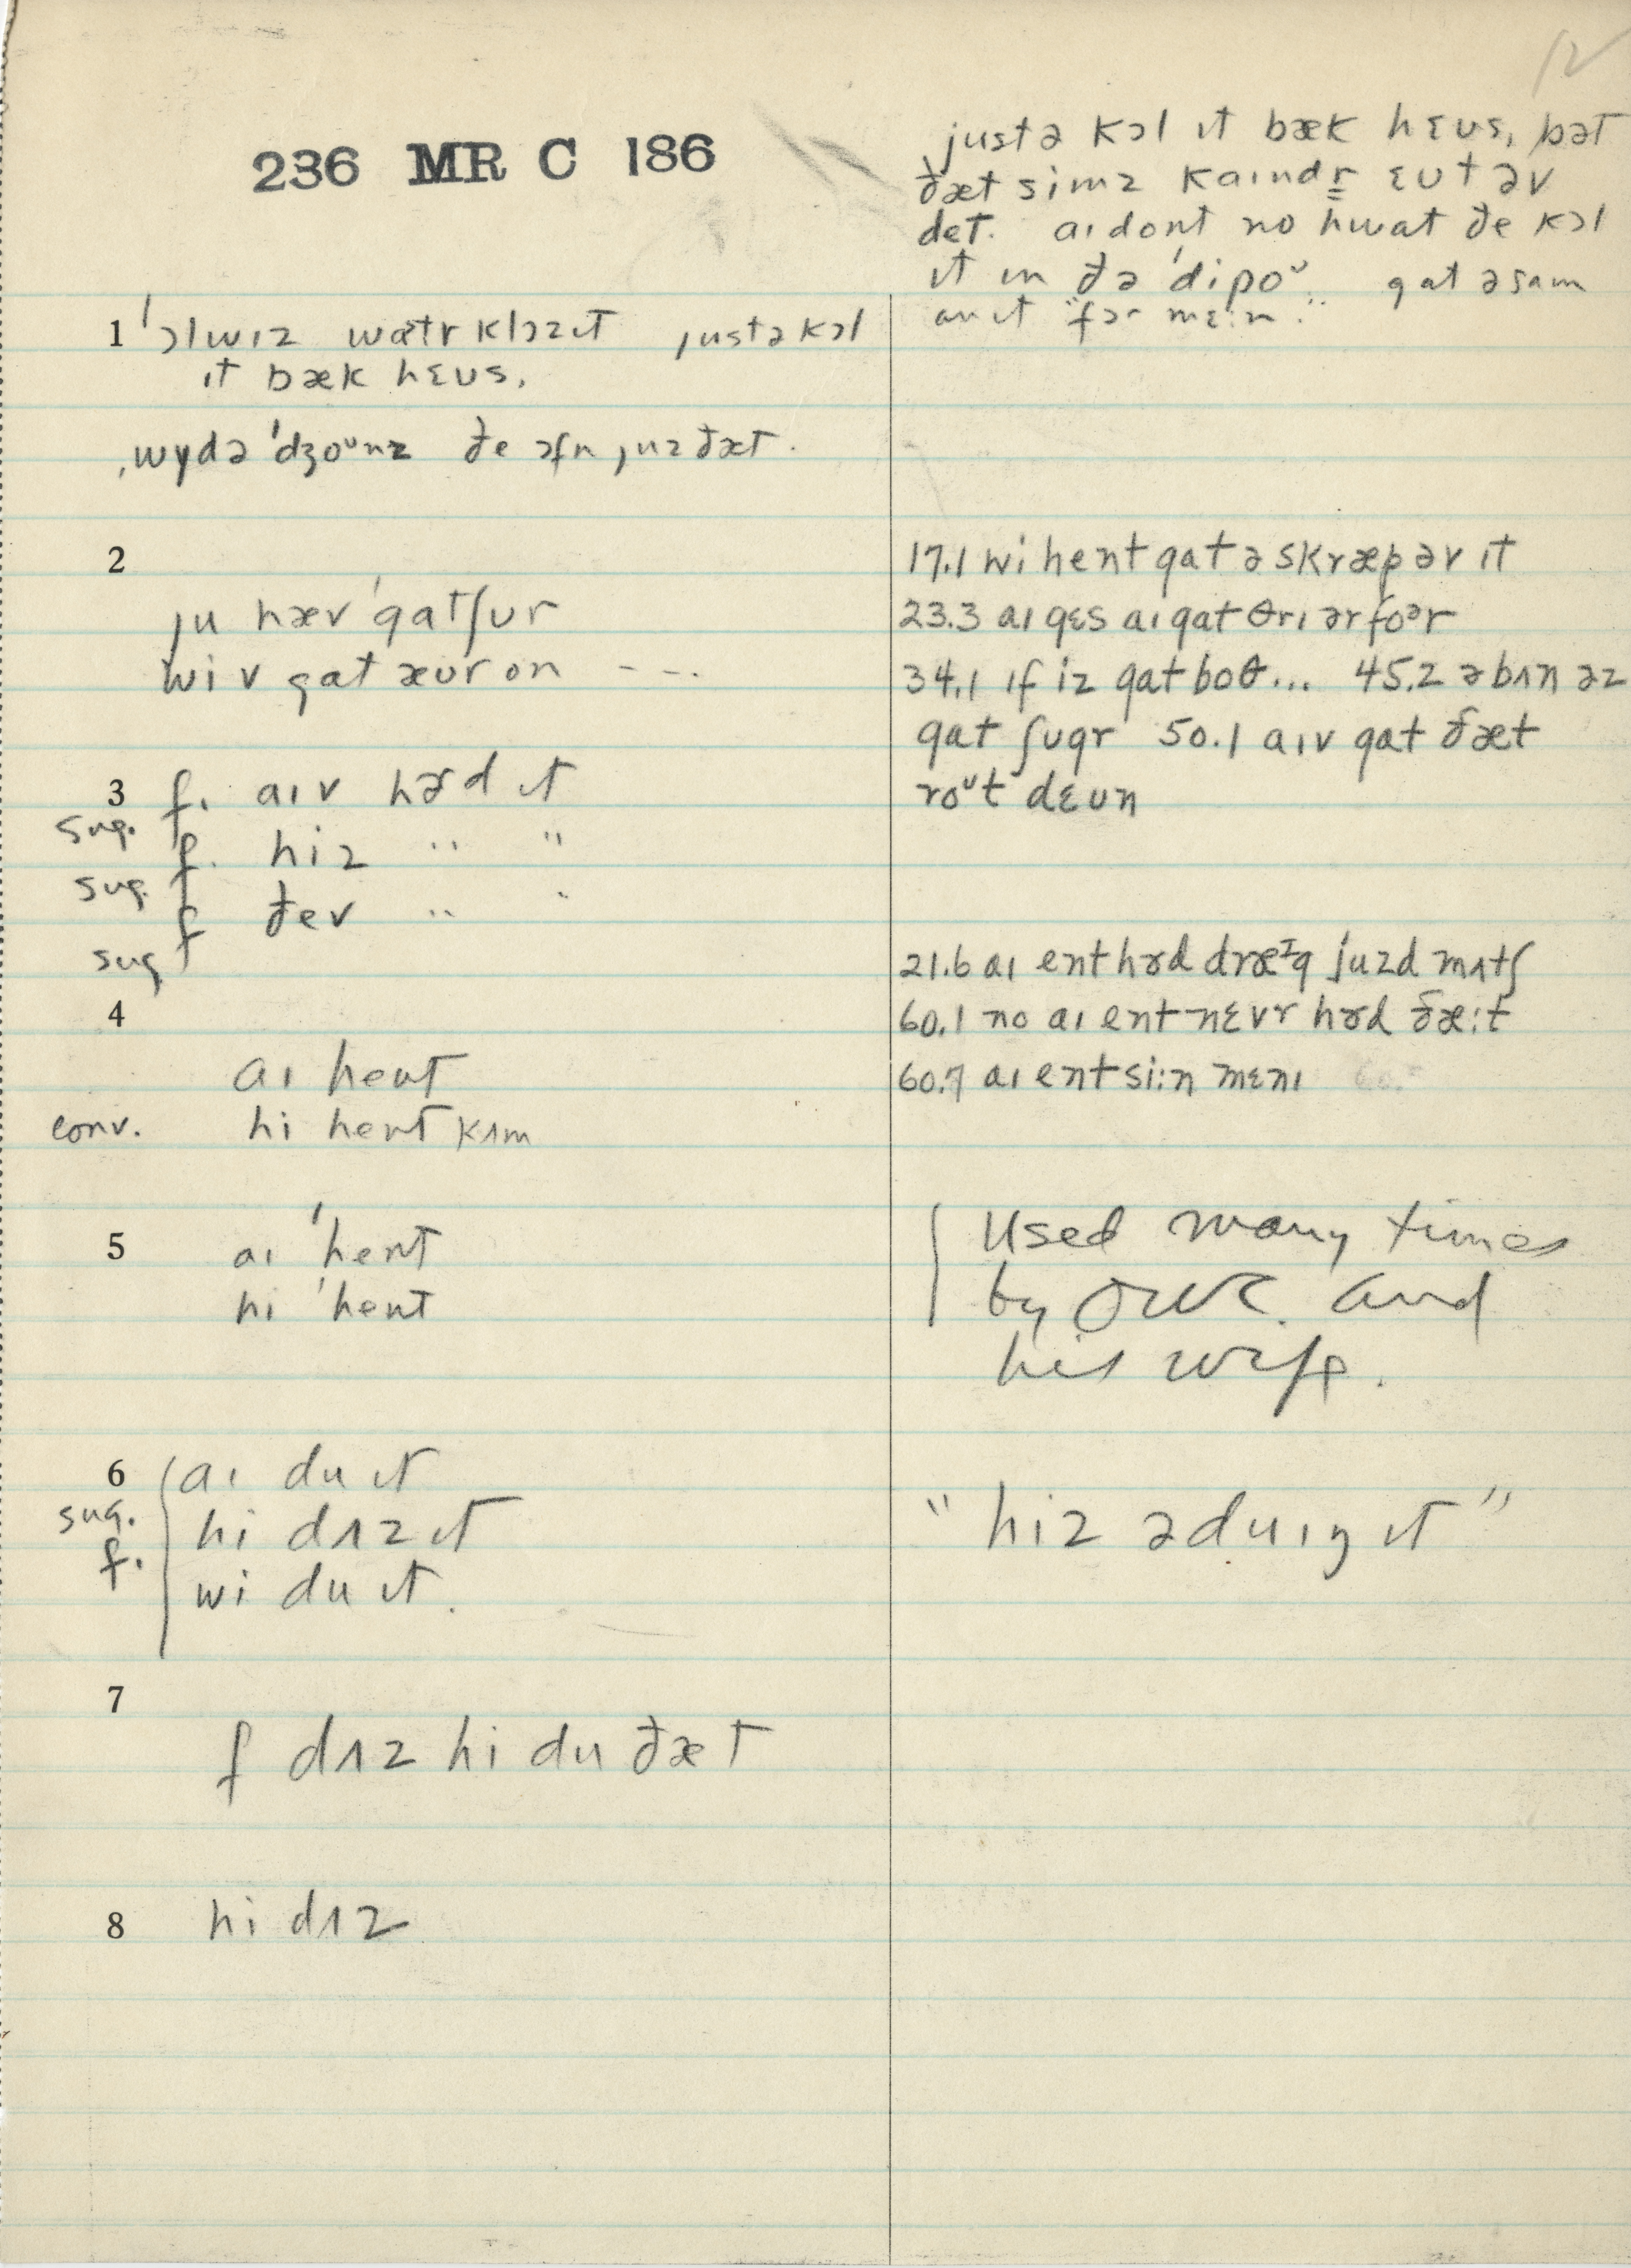 236 MR C 186
justə kɔl ɪt bæk hɛʊs, bət
ðæt simz kaɪndr̳ ɛʊt əv
det. aɪ dont no hwat ðe kɔl
ɪt ɪn ðə ˈdipoᵘ. gat ə saɪn
an ɪt "fər mɛ:n."
1 ˈɔlwɪz watr klɔzɪt justə kɔl
ɪt bæk hɛʊs.
wydə ˈdʒoᵘnz ðe ɔfn juz ðæt.
2
ju hæv ˈgat ʃʊr
wiv gat æʊr on ---
17.1 wi hent gat ə skræp əv ɪt
23.3 aɪ gɛs aɪ gat θrɪ ər foᵊr
34.1 ɪf iz gat boθ... 45.2 ə bʌn əz
gat ʃugr 50.1 aɪv gat ðæt
roᵘt dɛʊn
3 f. aɪv hɚd ɪt
sug.
f. hiz " "
sug.
f ðev " "
sug
4
aɪ hent
conv. hi hent kʌm
21.6 aɪ ent hɚd dræᴵg juzd mʌtʃ
60.1 no aɪ ent nɛvr hɚd ðæ:t
60.7 aɪ ent si:n mɛnɪ
5 aɪ ˈhent
hi ˈhent
Used many times
by OWR. and
his wife.
6 aɪ du ɪt
sug. hi dʌz ɪt
f. wi du ɪt.
"hiz əduɪŋ ɪt"
7
f dʌz hi du ðæt
8 hi dʌz